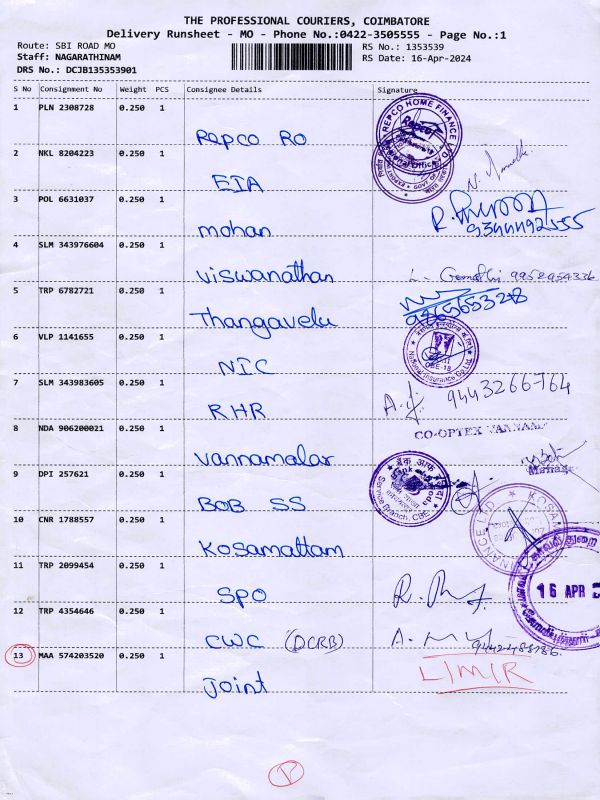 THE PROFESSIONAL COURIERS, COIMBATORE
Delivery Runsheet - MO - Phone No.:0422-3505555 - Page No.:1
Route: SBI ROAD MO
RS No.: 1353539
Staff: NAGARATHINAM
RS Date: 16-Apr-2024
DRS No.: DCJB135353901
S No Consignment No Weight PCS Consignee Details Signature
1 PLN 2308728 0.250 1
Repco RO
REPCO HOME FINANCE LTD
2 NKL 8204223 0.250 1
EIA
3 POL 6631037 0.250 1
mohan
9344492555
4 SLM 343976604 0.250 1
viswanathan
5 TRP 6782721 0.250 1
Thangavelu
6 VLP 1141655 0.250 1
NIC
National Insurance Co Ltd.
7 SLM 343983605 0.250 1
RHR
9443266764
8 NDA 906200021 0.250 1
vannamalar
CO-OPTEX
9 DPI 257621 0.250 1
BOB SS
Service Branch, CBE
10 CNR 1788557 0.250 1
Kosamattam
11 TRP 2099454 0.250 1
SPO
16 APR
12 TRP 4354646 0.250 1
CWC (DCRB)
13 MAA 574203520 0.250 1
Joint